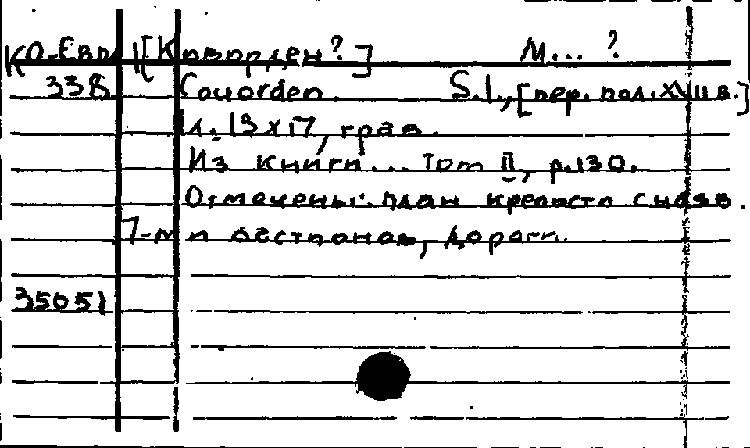 КО-Евр [Коворден?] М... ?
338 Couorden. S.l., [пер. пол. XVII в.]
1 л. 19х17, грав.
Из книги... Tom II, p.130.
Отмечены: план крепости с
7-ми бастионов, дороги.
35051